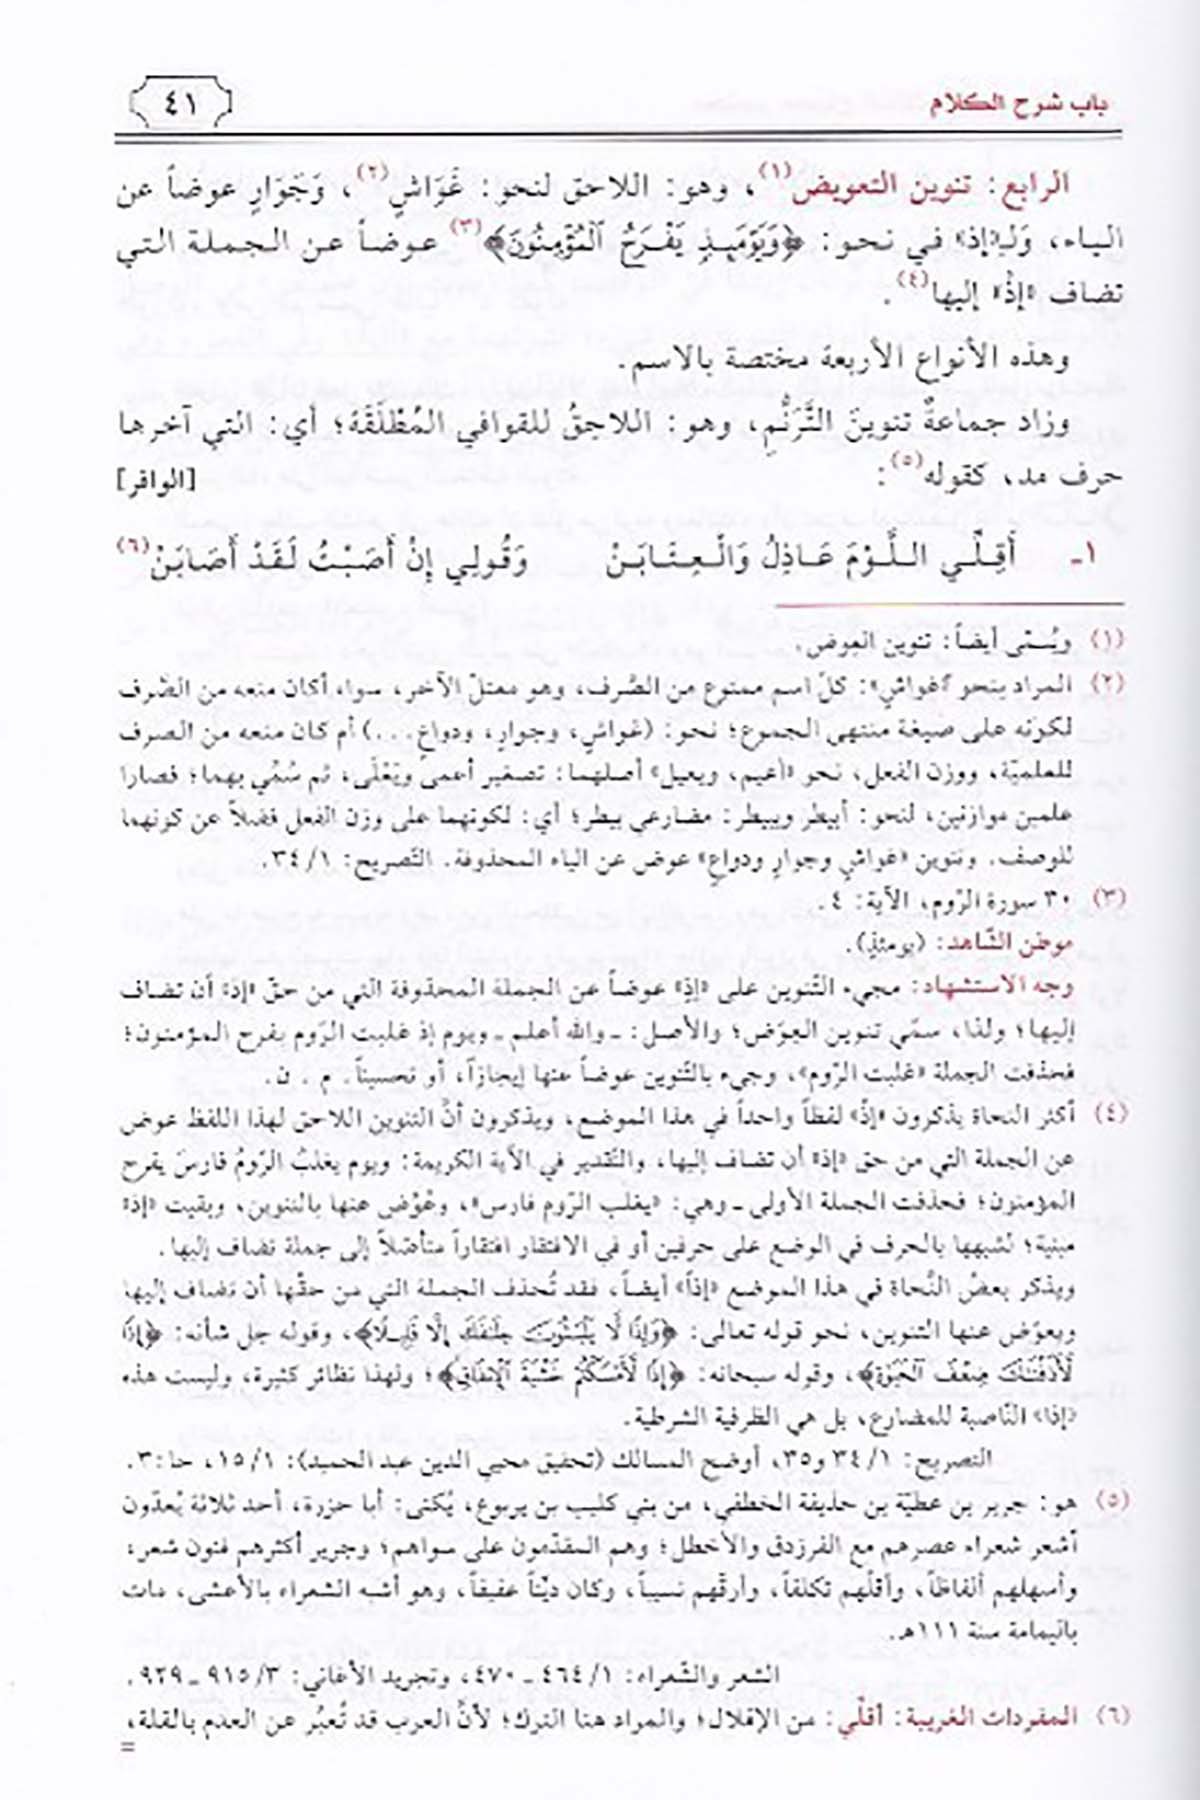 باب شرح الكلام
٤١
الرابع: تنوين التعويض(١)، وهو: اللاحق لنحو: غَوَاشٍ(٢)، وَجَوَارٍ عوضاً عن
الياء، وَلـ«إذ» في نحو: ﴿وَيَوْمَئِذٍ يَفْرَحُ الْمُؤْمِنُونَ﴾(٣) عوضاً عن الجملة التي
تضاف «إذْ» إليها(٤).
وهذه الأنواع الأربعة مختصة بالاسم.
وزاد جماعةٌ تنوينَ التَّرَنُّمِ، وهو: اللاحقُ للقوافي المُطْلَقَة؛ أي: التي آخرها
حرف مد، كقوله(٥): [الوافر]
١ـ أَقِلِّي اللَّوْمَ عَاذِلُ وَالْعِتَابَنْ وَقُولِي إِنْ أَصَبْتُ لَقَدْ أَصَابَنْ(٦)
(١) ويُسْمّى أيضاً: تنوين العِوض.
(٢) المراد بنحو «غواشٍ»: كلّ اسم ممنوع من الصَّرف، وهو معتلّ الآخر، سواء أكان منعه من الصَّرف
لكونه على صيغة منتهى الجموع؛ نحو: (غواشٍ، وجوارٍ، ودواعٍ...) أم كان منعه من الصرف
للعلميّة، ووزن الفعل، نحو «أعيم، ويعيل» أصلهما: تصغير أعمى ويَعْلَى، ثم سُمِّي بهما؛ فصارا
علمين موازنين، لنحو: أبيطر ويبيطر: مضارعي بيطر؛ أي: لكونهما على وزن الفعل فضلاً عن كونهما
للوصف. وتنوين «غواشٍ وجوارٍ ودواعٍ» عوض عن الياء المحذوفة. التّصريح: ٣٤/١.
(٣) ٣٠ سورة الرّوم، الآية: ٤.
موطن الشّاهد: (يومئذٍ).
وجه الاستشهاد: مجيء التّنوين على «إذٍ» عوضاً عن الجملة المحذوفة التي من حقّ «إذ» أن تضاف
إليها؛ ولذا، سمّي تنوين العِوَض؛ والأصل: ـ والله أعلم ـ ويوم إذ غلبت الرّوم يفرح المؤمنون؛
فحذفت الجملة «غلبت الرّوم»، وجيء بالتّنوين عوضاً عنها إيجازاً، أو تحسيناً. م. ن.
(٤) أكثر النحاة يذكرون «إذْ» لفظاً واحداً في هذا الموضع، ويذكرون أنَّ التنوين اللاحق لهذا اللفظ عوض
عن الجملة التي من حق «إذ» أن تضاف إليها، والتّقدير في الآية الكريمة: ويوم يغلبُ الرّومُ فارسَ يفرح
المؤمنون؛ فحذفت الجملة الأولى ـ وهي: «يغلب الرّوم فارس»، وعُوِّض عنها بالتنوين، وبقيت «إذ»
مبنية؛ لشبهها بالحرف في الوضع على حرفين أو في الافتقار افتقاراً متأصّلاً إلى جملة تضاف إليها.
ويذكر بعضُ النُّحاة في هذا الموضع «إذاً» أيضاً، فقد تُحذف الجملة التي من حقّها أن تضاف إليها
ويعوّض عنها التنوين، نحو قوله تعالى: ﴿وَإِذًا لَا يَلْبَثُونَ خِلَافَكَ إِلَّا قَلِيلًا﴾، وقوله جل شأنه: ﴿إِذًا
لَأَذَقْنَاكَ ضِعْفَ الْحَيَاةِ﴾، وقوله سبحانه: ﴿إِذًا لَأَمْسَكْتُمْ خَشْيَةَ الْإِنْفَاقِ﴾؛ ولهذا نظائر كثيرة، وليست هذه
«إذا» النّاصبة للمضارع، بل هي الظرفية الشرطية.
التصريح: ٣٤/١ و٣٥، أوضح المسالك (تحقيق محيي الدين عبد الحميد): ١٥/١، حا:٣.
(٥) هو: جرير بن عطيّة بن حذيفة الخطفي، من بني كليب بن يربوع، يُكنى: أبا حزرة، أحد ثلاثة يُعدّون
أشعر شعراء عصرهم مع الفرزدق والأخطل؛ وهم المقدّمون على سواهم؛ وجرير أكثرهم فنون شعر،
وأسهلهم ألفاظاً، وأقلّهم تكلفاً، وأرقّهم نسيباً، وكان ديّناً عفيفاً، وهو أشبه الشعراء بالأعشى، مات
باليمامة سنة ١١١هـ.
الشعر والشّعراء: ٤٦٤/١ ـ ٤٧٠، وتجريد الأغاني: ٩١٥/٣ ـ ٩٢٩.
(٦) المفردات الغريبة: أقلّي: من الإقلال؛ والمراد هنا الترك؛ لأنَّ العرب قد تُعبِّر عن العدم بالقلة،
=